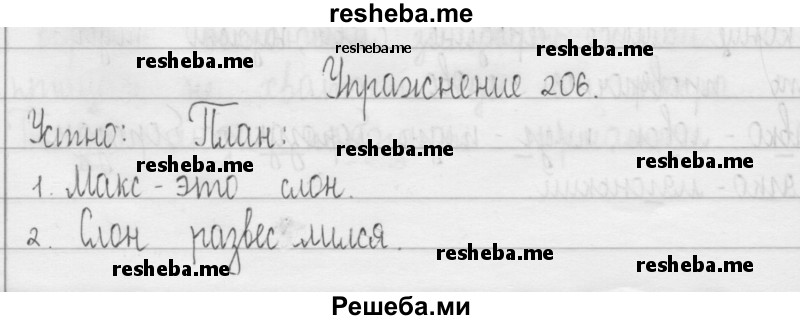 resheba.me
resheba.me resheba.me
resheba.me
Упражнение 206.
resheba.me
Устно: План:
resheba.me
resheba.me resheba.me
1. Макс - это слон.
2. Слон развес милСя.
resheba.me resheba.me
resheba.me
Решеба.ми